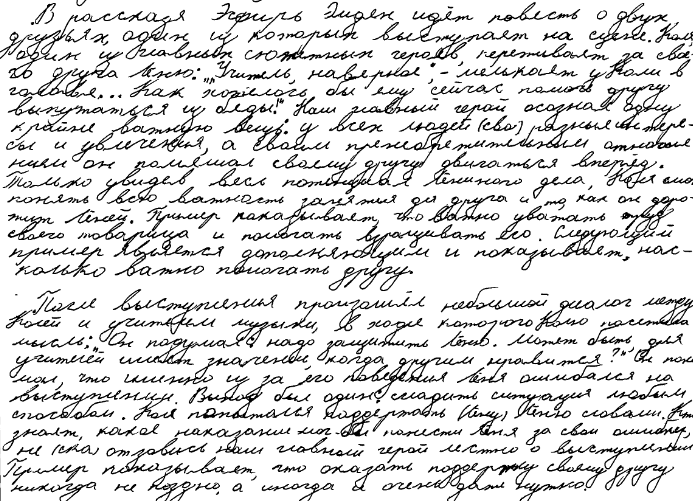 В рассказе Эсфирь Эмден идёт повесть о двух
друзьях, один из которых выступает на сцене. Коля
один из главных сюжетных героев, переживает за сво-
его друга Лёню: „Учитель, наверное", - мелькает у Коли в
голове... Как хотелось бы ему сейчас помочь другу
выпутаться из беды!" Наш главный герой осознал одну
крайне важную вещь: у всех людей (сво) разные интере-
сы и увлечения, а своим пренебрежительным отноше
нием он помешал своему другу двигаться вперёд.
Только увидев весь потенциал Лёниного дела, Коля смог
понять всю важность занятия для друга и то, как он доро-
жит Лёней. Пример показывает, что важно уважать труд
своего товарища и помогать взращивать его. Следующий
пример является дополняющим и показывает, нас-
колько важно помогать другу.
После выступления произошёл небольшой диалог между
Колей и учителем музыки, в ходе которого Колю посетила
мысль: „Он подумал: надо защитить Лёню. Может быть, для
учителей имеет значение, когда другим нравится?" Он пони
мал, что именно из за его поведения Лёня ошибался на
выступлении. Выход был один: сгладить ситуацию любым
способом. Коля попытался поддержать (Лёну) Лёню словами. Не
зная, какое наказание мог бы понести Лёня за свои ошибки,
не (ска) отзовись наш главный герой лестно о выступлении
Пример показывает, что оказать поддержку своему другу
никогда не поздно, а иногда и очень даже нужно.